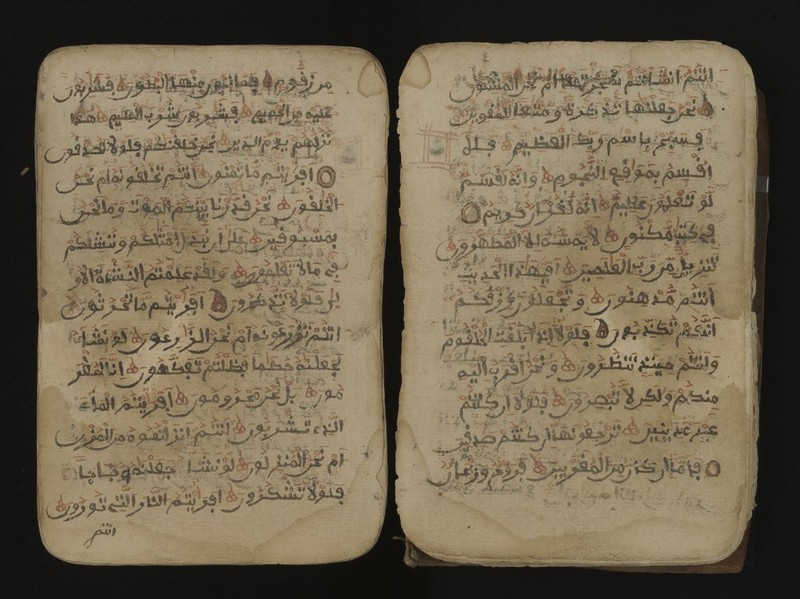 من زقوم فمالون منها البطون فشربون
عليه من الحميم فشربون شرب الهيم هذا
نزلهم يوم الدين نحن خلقنكم فلولا تصدقون
افريتم ما تمنون ءانتم تخلقونه ام نحن
الخلقون نحن قدرنا بينكم الموت وما نحن
بمسبوقين على ان نبدل امثلكم وننشئكم
في ما لا تعلمون ولقد علمتم النشاة الاو
لى فلولا تذكرون افريتم ما تحرثون
ءانتم تزرعونه ام نحن الزارعون لو نشاء
لجعلنه حطما فظلتم تفكهون انا لمغر
مون بل نحن محرومون افريتم الماء
الذي تشربون ءانتم انزلتموه من المزن
ام نحن المنزلون لو نشاء جعلنه اجاجا
فلولا تشكرون افريتم النار التي تورون
انتم
انتم انشاتم شجرتها ام نحن المنشون
نحن جعلنها تذكرة ومتعا للمقوين
فسبح باسم ربك العظيم فلا
اقسم بموقع النجوم وانه لقسم
لو تعلمون عظيم انه لقرءان كريم
في كتب مكنون لا يمسه الا المطهرون
تنزيل من رب العلمين افبهذا الحديث
انتم مدهنون وتجعلون رزقكم
انكم تكذبون فلولا اذا بلغت الحلقوم
وانتم حينئذ تنظرون ونحن اقرب اليه
منكم ولكن لا تبصرون فلولا ان كنتم
غير مدينين ترجعونها ان كنتم صدقين
فاما ان كان من المقربين فروح وريحان